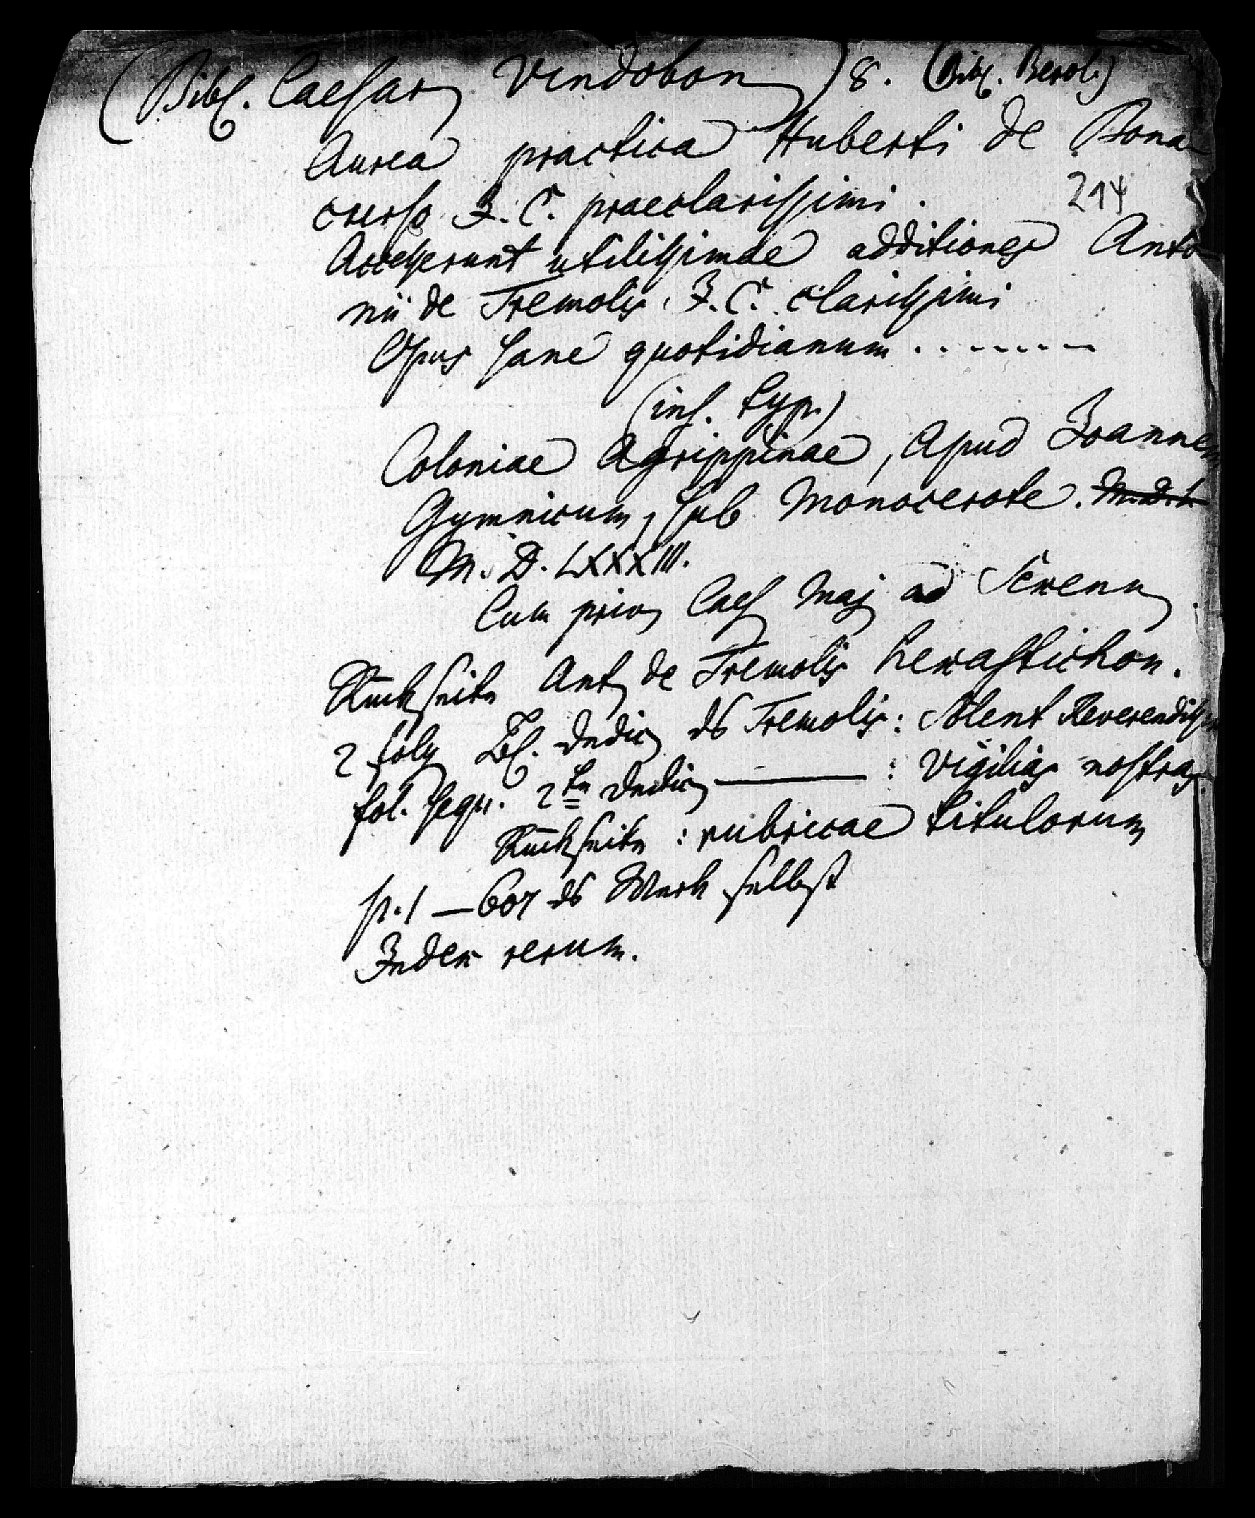 (Bibl. Caesar Vindobon) 8. (Bibl. Berol.)
Aurea practica Huberti de Bona-
curso J. C. praeclarissimi.
214
Accesserunt utilissimae additiones Anto
nii de Tremolis J. C. clarissimi
Opus sane quotidianum . . . . . . . .
(ins. typ.)
Coloniae Agrippinae, apud Joannem
Gymnicum, sub Monocerote.
M. D. LXXXIII.
Cum priv Caes Maj ad
Rückseite Ant de Tremolis hexastichon.
2 folg Bl. Dedic ds Tremolis: Solent Reverendiss
fol. sequ. 2te Dedic ——— : Vigilias nostras
Rückseite : rubricae titulorum
p. 1 — 607 ds Werk selbst
Index rerum.